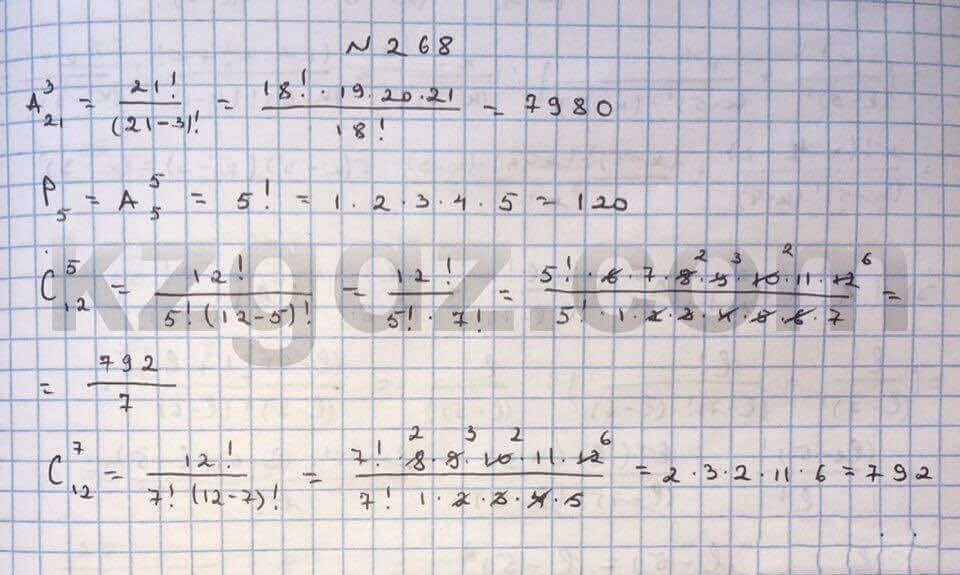 N 268
A³₂₁ = 21! / (21-3)! = 18! · 19 · 20 · 21 / 18! = 7980
P₅ = A⁵₅ = 5! = 1 · 2 · 3 · 4 · 5 = 120
C⁵₁₂ = 12! / 5! (12-5)! = 12! / 5! · 7! = 5! · 6 · 7 · 8² · 9³ · 10² · 11 · 12⁶ / 5! · 1 · 2 · 3 · 4 · 5 · 6 · 7 =
= 792 / 7
C⁷₁₂ = 12! / 7! (12-7)! = 7! · 8² · 9³ · 10² · 11 · 12⁶ / 7! 1 · 2 · 3 · 4 · 5 = 2 · 3 · 2 · 11 · 6 = 792
kzgdz.com